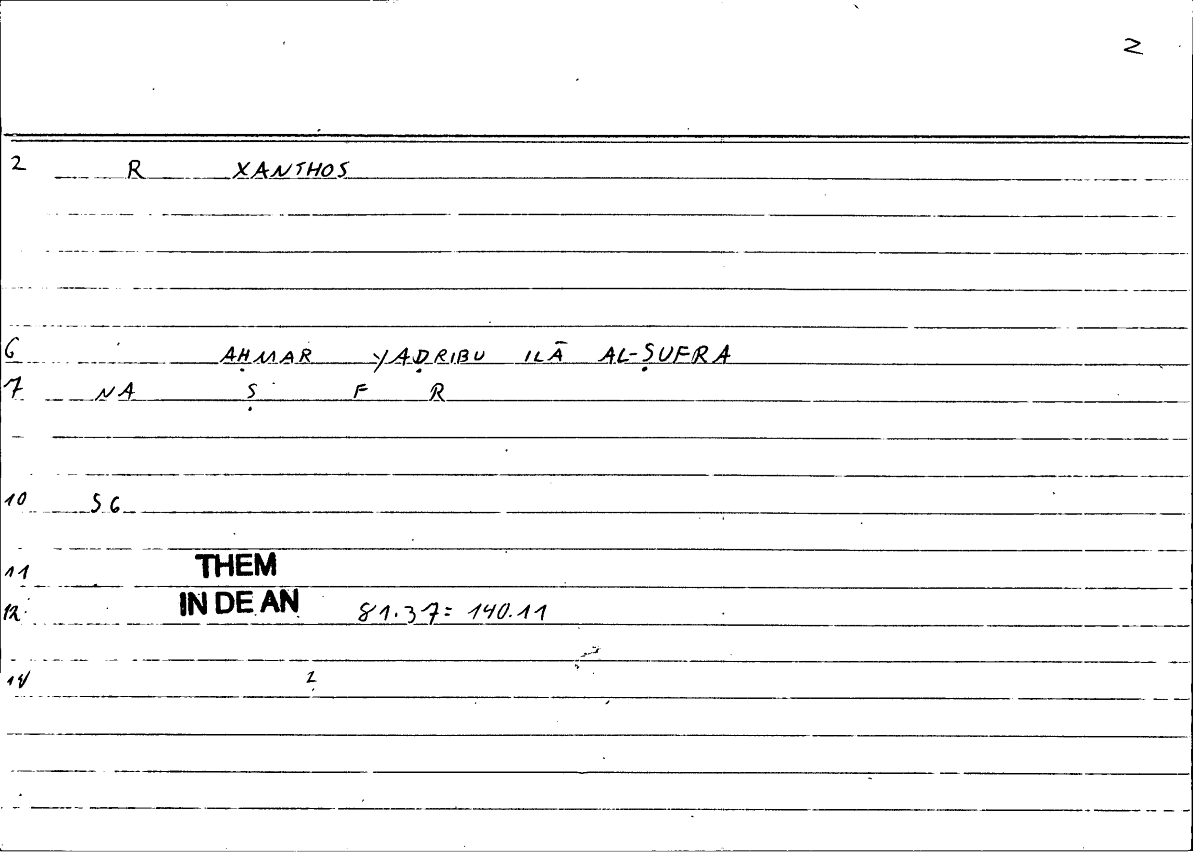 2
2 R XANTHOS
6 AḤMAR YAḌRIBU ILĀ AL-ṢUFRA
7 NA Ṣ F R
10 SG
11 THEM
12 IN DE AN 81.37= 140.11
14 2